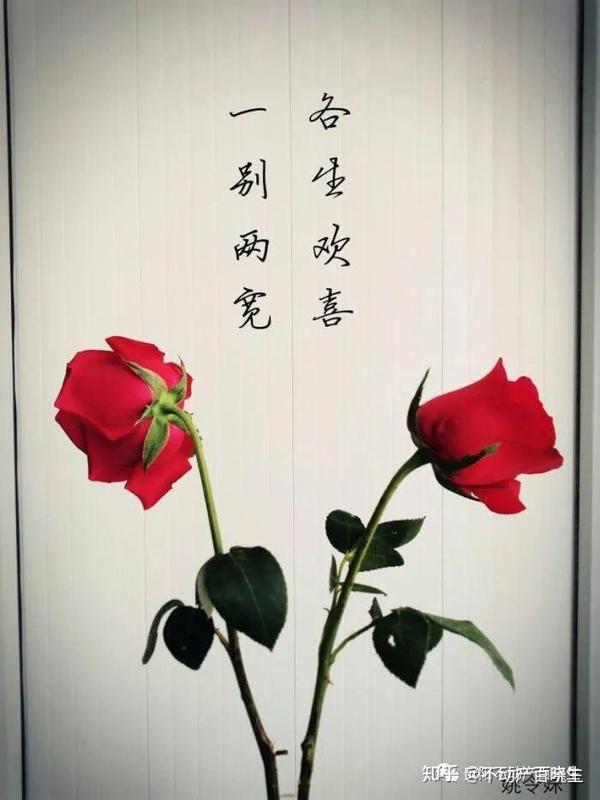 一别两宽
各生欢喜
知乎 @不动产百晓生